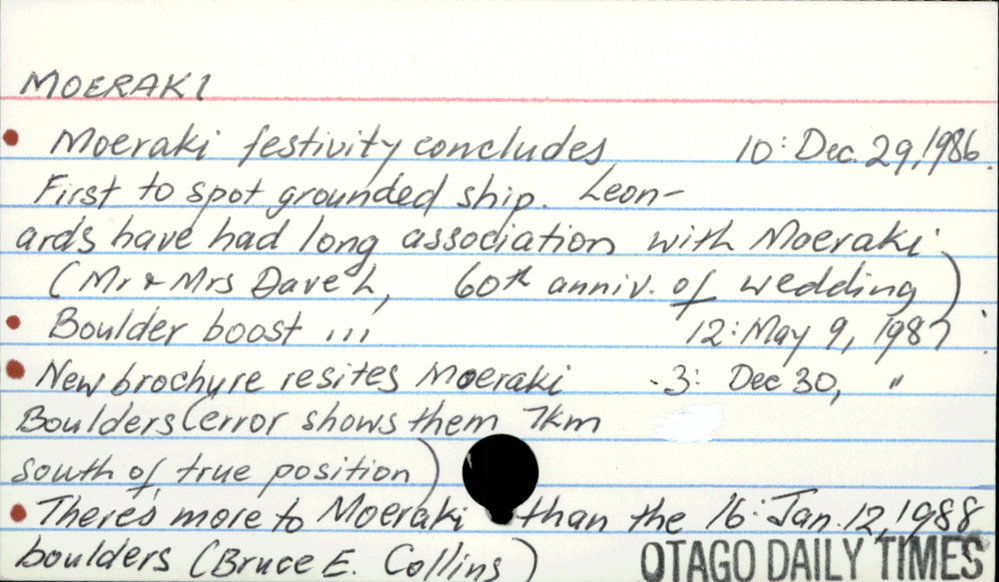 MOERAKI
• Moeraki festivity concludes 10: Dec. 29, 1986.
First to spot grounded ship. Leon-
ards have had long association with Moeraki
(Mr & Mrs Dave L, 60th anniv. of wedding)
• Boulder boost ... 12: May 9, 1987.
• New brochure resites Moeraki 3: Dec 30, "
Boulders (error shows them 7km
south of true position)
• There's more to Moeraki than the 16: Jan. 12, 1988
boulders (Bruce E. Collins) OTAGO DAILY TIMES